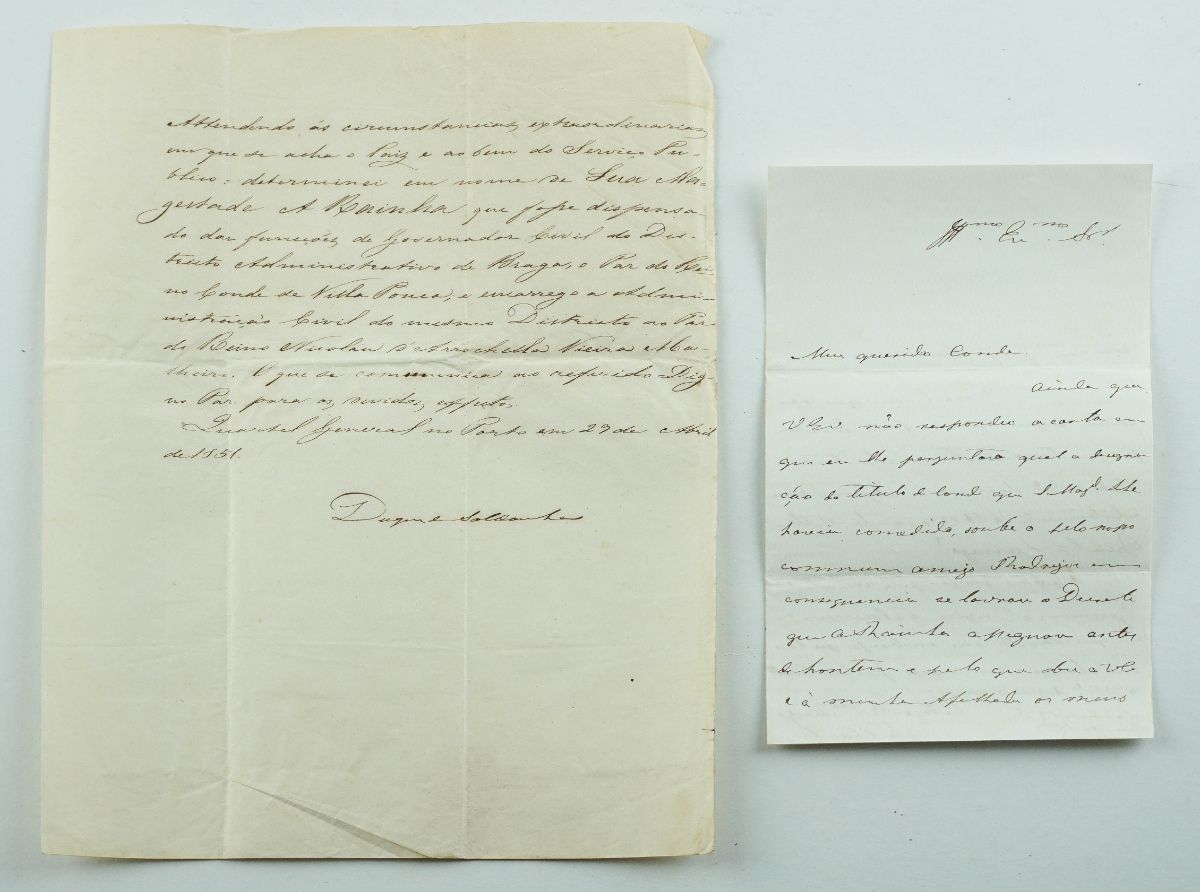 Attendendo ás circumstancias extraordinarias
em que se acha o Paiz e ao bem do Serviço Pu-
blico: determinei em nome de Sua Ma-
gestade A Rainha que fosse dispensa-
do das funções de Governador Civil do Dis-
tricto Administrativo de Braga, o Par do Rei-
no Conde de Villa Pouca, e encarrego a Admi-
nistração Civil do mesmo Districto ao Par
do Reino Nicolau d'Arrochella Vieira Ma-
lheiro. O que se communica ao referido Dig-
no Par para os devidos effeitos.
Quartel General no Porto em 29 de Abril
de 1851.
Duque de Saldanha
Illmo Exmo Sr.
Meu querido Conde
ainda que
V Exa. não respondeo a carta em
que eu lhe perguntava qual a designa-
ção do titulo de Conde que S. Magde. lhe
havia concedido, soube o pelo nosso
commum amigo Rodrigo em
consequencia se lavrou o Decreto
que a Rainha assignou antes
de hontem e pelo que dou a VEx
e á minha Afilhada os meus